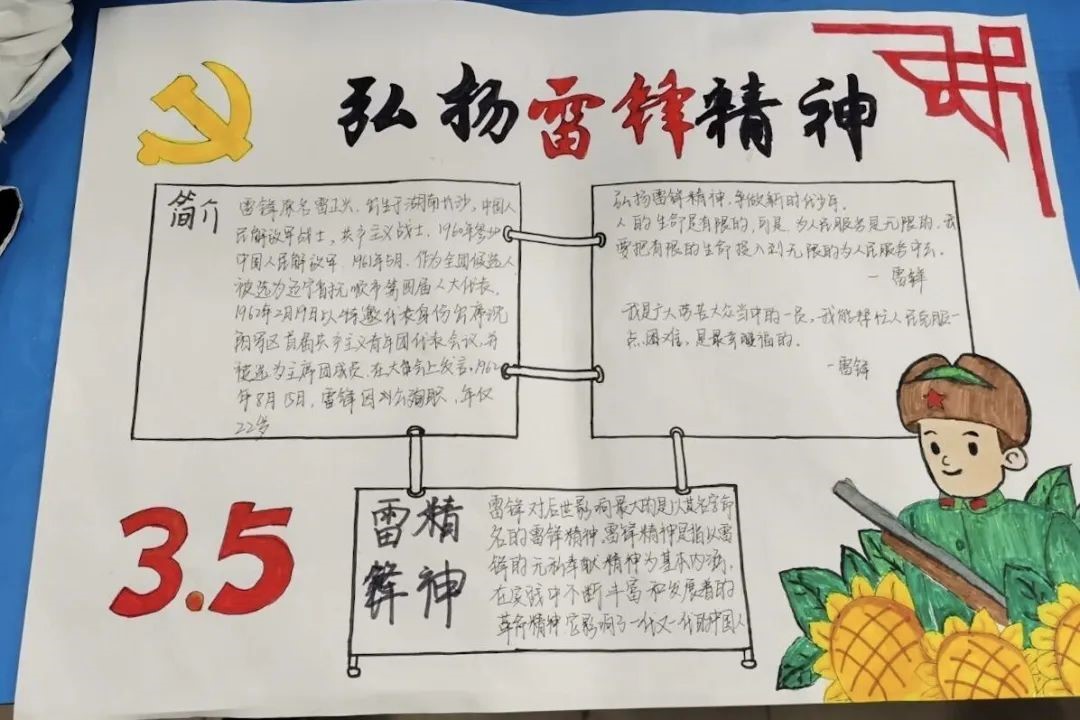 弘扬雷锋精神
简介
雷锋原名雷正兴，出生于湖南长沙，中国人
民解放军战士，共产主义战士，1960年参加
中国人民解放军，1961年5月，作为全团候选人
被选为辽宁省抚顺市第四届人大代表，
1962年2月19日以特邀代表身份出席沈
阳军区首届共产主义青年团代表会议，并
被选为主席团成员，在大会上发言，1962
年8月15日，雷锋因公殉职，年仅
22岁
弘扬雷锋精神，争做新时代少年。
人的生命是有限的，可是，为人民服务是无限的，我
要把有限的生命投入到无限的为人民服务中去。
—雷锋
我是广大劳苦大众当中的一员，我能帮住人民克服一
点困难，是最幸福的。
—雷锋
3.5
雷锋精神
雷锋对后世影响最大的是以其名字命
名的雷锋精神，雷锋精神是指以雷
锋的无私奉献精神为基本内涵，
在实践中不断丰富和发展着的
革命精神，它影响了一代又一代的中国人